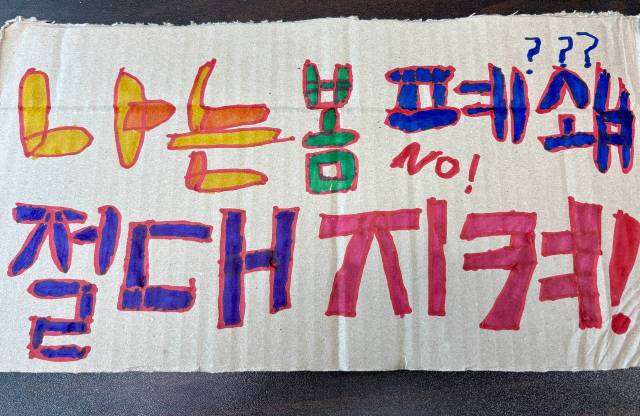 ???
나는봄 폐쇄
NO!
절대지켜!